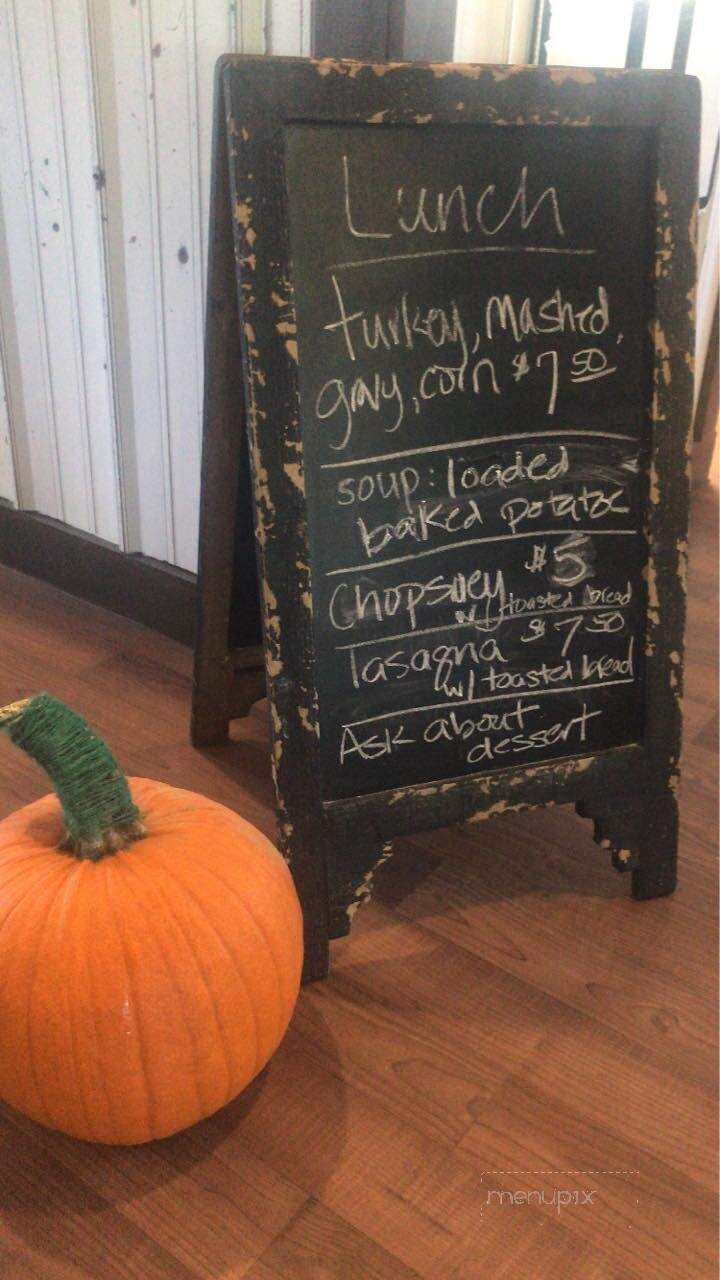 Lunch
turkey, mashed,
gravy, corn $7 50
soup: loaded
baked potatoe
Chopsuey $5
w/ toasted bread
lasagna $7 50
w/ toasted bread
Ask about
dessert
menupix